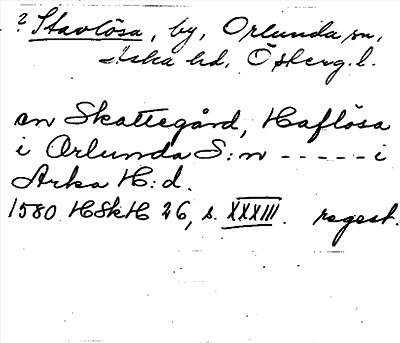 ? Stavlösa, by, Orlunda sn,
Aska hd, Österg. l.
en Skattegård, Haflösa
i Orlunda S:n ----- i
Arka H:d.
1580 HSkH 26, s. XXXIII. regest.